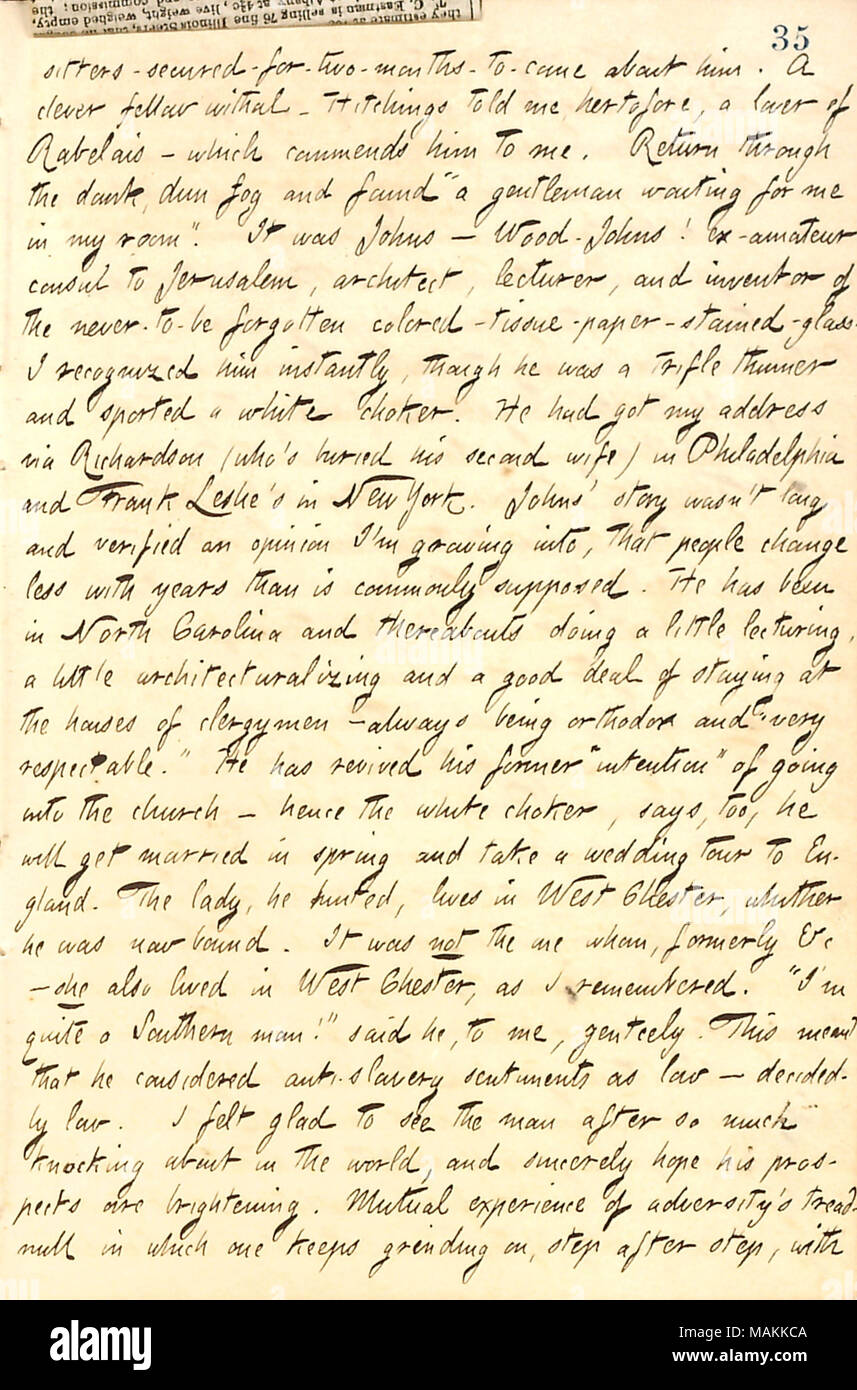 they estimate
T. C. Eastman is selling 76 fine Illinois Steers,
at Albany at 4¾c, live weight, weighed empty,
and commission; the
35
sitters-secured-for-two-months-to-come about him. A
clever fellow withal - Hitchings told me, hertofore, a lover of
Rabelais - which commends him to me. Return through
the dank, dun fog and found "a gentleman waiting for me
in my room". It was Johns - Wood-Johns! ex-amateur
consul to Jerusalem, architect, lecturer, and inventor of
the never-to-be forgotten colored-tissue-paper-stained-glass.
I recognized him instantly, though he was a trifle thinner
and sported a white choker. He had got my address
via Richardson (who's buried his second wife) in Philadelphia
and Frank Leslie's in New York. Johns' story wasn't long
and verified an opinion I'm growing into, that people change
less with years than is commonly supposed. He has been
in North Carolina and thereabouts doing a little lecturing,
a little architecturalizing and a good deal of staying at
the houses of clergymen - always being orthodox and "very
respectable." He has revived his former "intention" of going
into the church - hence the white choker, says, too, he
will get married in spring and take a wedding tour to En-
gland. The lady, he hinted, lives in West Chester, whither
he was now bound. It was not the one whom, formerly &c
- she also lived in West Chester, as I remembered. "I'm
quite a Southern man!" said he, to me, genteely. This meant
that he considered anti-slavery sentiments as low - decided-
ly low. I felt glad to see the man after so much
knocking about in the world, and sincerely hope his pros-
pects are brightening. Mutual experience of adversity's tread-
mill in which one keeps grinding on, step after step, with
alamy
Image ID: MAKKCA
www.alamy.com